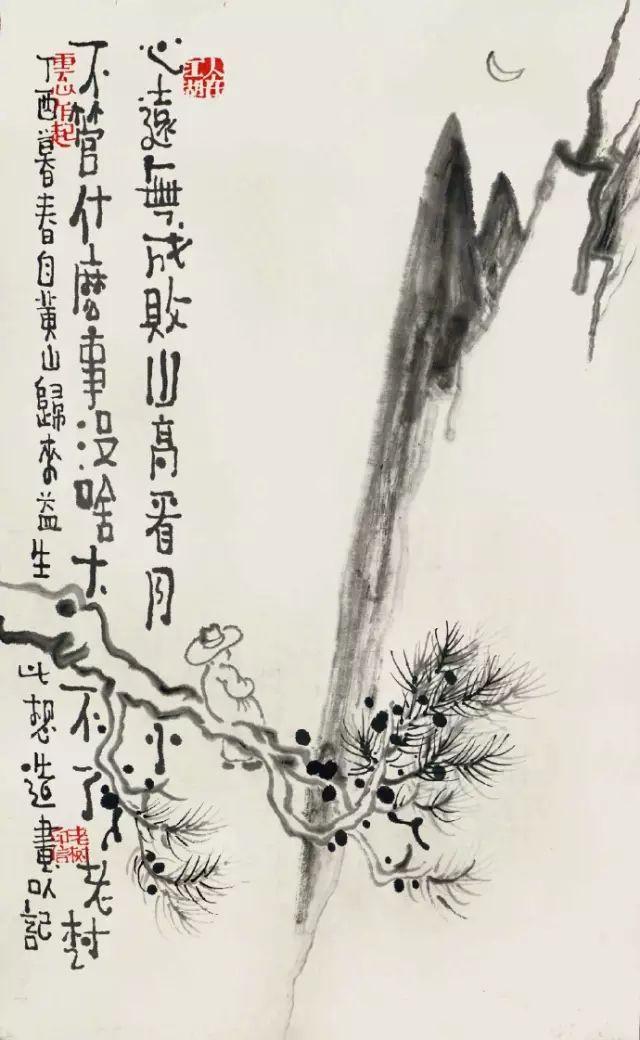 人在江湖
心遠無成敗山高看月
小
不管什麽事没啥大
不了老树
丁酉暮春自黄山歸來益生
此想造畫以記